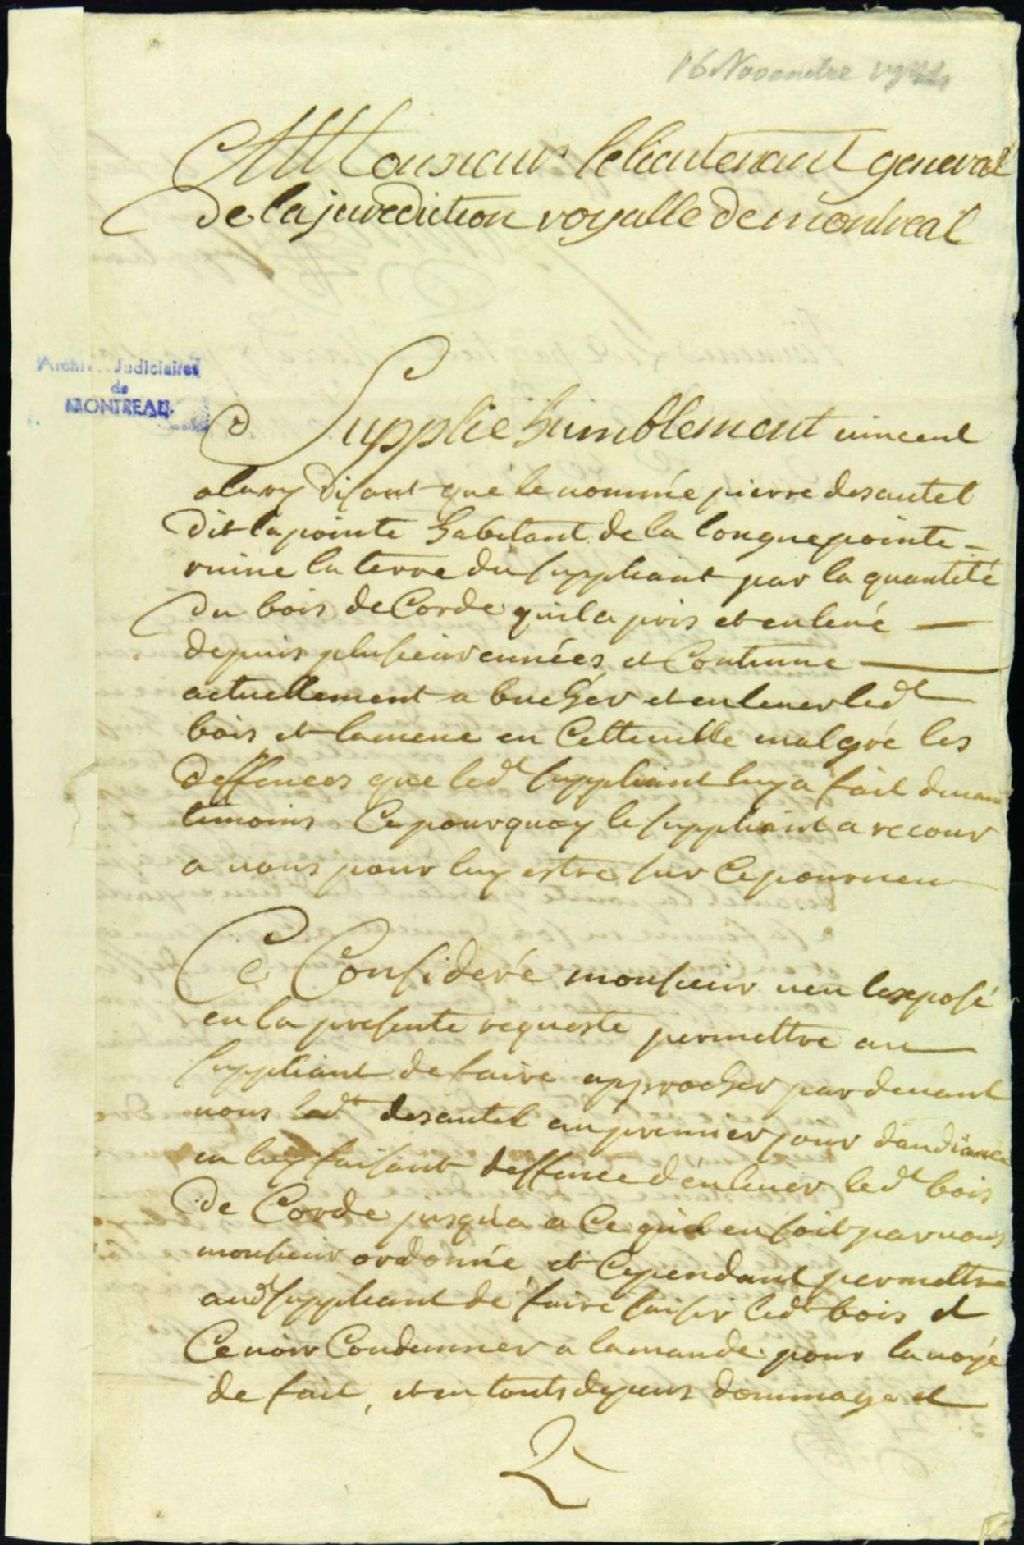 16 Novembre
A Monsieur le lieutenant general
de la jurediction royalle de montreal
Archives Judiciaires
de
MONTREAL
Supplie humblement vincent
alary disant que le nommée pierre desautel
dit lapointe habitant de la longue pointe
ruine la terre du suppliant par la quantité
du bois de Corde quil a pris et enlevé
depuis plusieur ennées et Continue
actuellement a bucher et enlever led.t
bois et lamene en Cette ville malgré les
deffences que led.t suppliant luy a fait devant
temoins Ce pourquoy le suppliant a recour
a vous pour luy estre sur Ce pourveu
Ce Consideré monsieur veu lexposé
en la presente requeste permettre au
suppliant de faire approcher par devant
vous led.t desautel au premier jour daudiance
en luy faisant deffence d'enlever led.t bois
de Corde jusqua a Ce quil en soit par vous
monsieur ordonné et Cependant permettre
aud suppliant de faire saisir led.t bois et
Ce voir Condamner a lamande pour la voye
de fait, et en touts depens dommage et
2